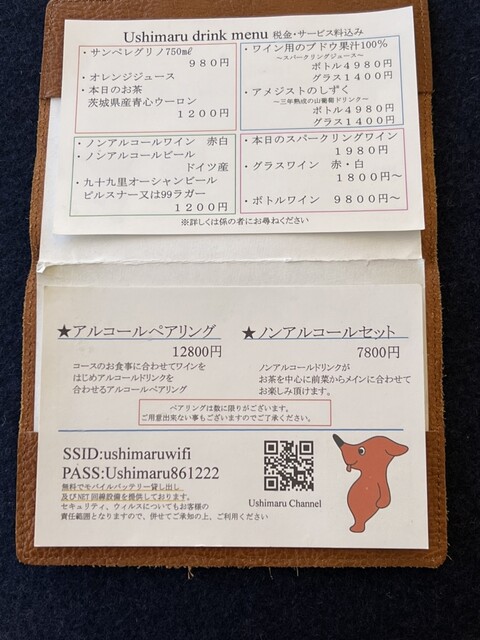 Ushimaru drink menu 税金・サービス料込み
・サンペレグリノ750㎖
９８０円
・オレンジジュース
・本日のお茶
茨城県産青心ウーロン
１２００円
・ワイン用のブドウ果汁100％
～スパークリングジュース～
ボトル４９８０円
グラス１４００円
・アメジストのしずく
～三年熟成の山葡萄ドリンク～
ボトル４９８０円
グラス１４００円
・ノンアルコールワイン　赤白
・ノンアルコールビール
ドイツ産
・九十九里オーシャンビール
ピルスナー又は99ラガー
１２００円
・本日のスパークリングワイン
１９８０円
・グラスワイン　赤・白
１８００円～
・ボトルワイン　９８００円～
※詳しくは係の者にお尋ねください
★アルコールペアリング
12800円
コースのお食事に合わせてワインを
はじめアルコールドリンクを
合わせるアルコールペアリング
★ノンアルコールセット
7800円
ノンアルコールドリンクが
お茶を中心に前菜からメインに合わせて
お楽しみ頂けます。
ペアリングは数に限りがございます。
ご用意出来ない事もございますのでご了承ください。
SSID:ushimaruwifi
PASS:Ushimaru861222
無料でモバイルバッテリー貸し出し
及びNET回線設備を提供しております。
セキュリティ、ウィルスについてもお客様の
責任範囲となりますので、併せてご承知の上、ご利用ください
Ushimaru Channel